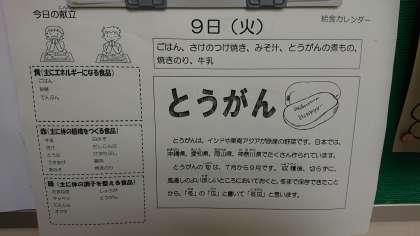 今日の献立
9日（火）
給食カレンダー
ごはん、さけのつけ焼き、みそ汁、とうがんの煮もの、
焼きのり、牛乳
黄（主にエネルギーになる食品）
ごはん
砂糖
でんぷん
赤（主に体の組織をつくる食品）
牛乳
さけ
とうふ
緑（主に体の調子を整える食品）
キャベツ
にんじん
しょうが
とうがん
とうがん
とうがんは、インドや東南アジアが原産の野菜です。日本では、
沖縄県、愛知県、岡山県、神奈川県でたくさん作られています。
とうがんの旬は、7月から9月です。収穫後、切らずに、
風通しのよい涼しいところにおいておくと、冬まで保存できたこと
から、「冬」の「瓜」と書いて「冬瓜」と言います。